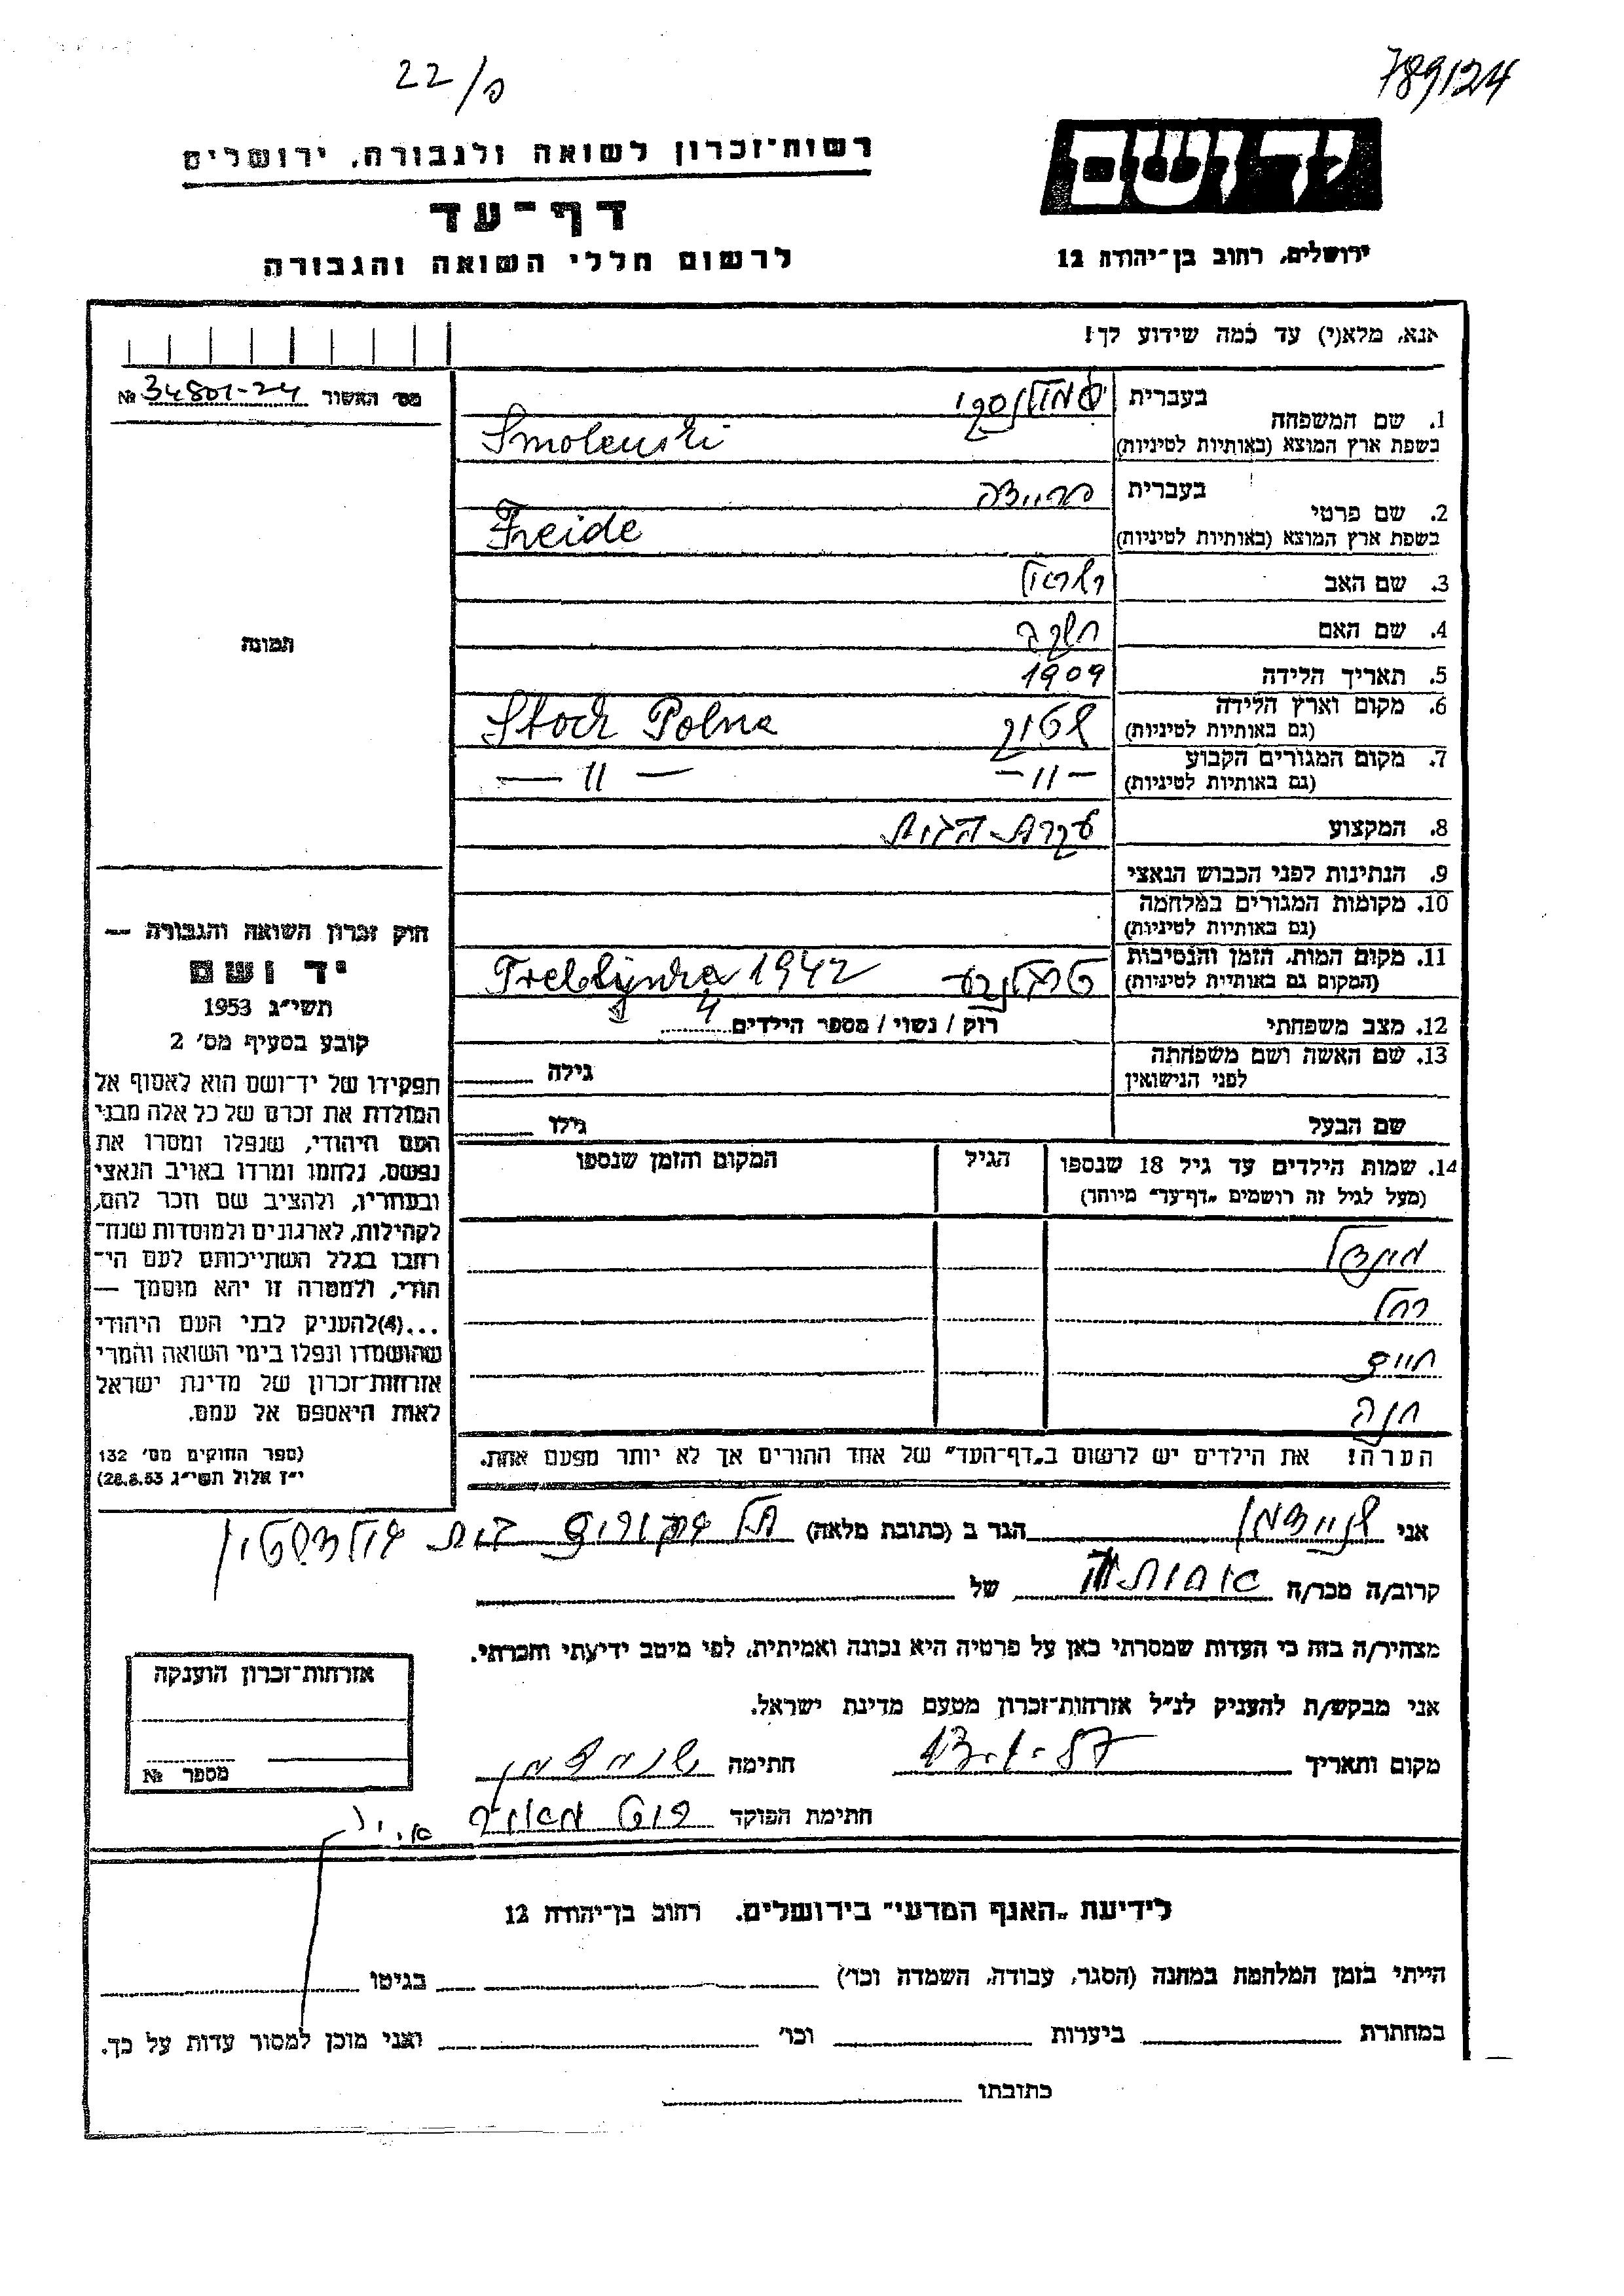 22/פ
789124
רשות־זכרון לשואה ולגבורה, ירושלים
דף־עד
לרשום חללי השואה והגבורה
יד ושם
ירושלים, רחוב בן־יהודה 12
אנא, מלא(י) עד כמה שידוע לך!
מס' האשור 34801-24 №
1. שם המשפחה
בעברית סמולנסקי
בשפת ארץ המוצא (באותיות לטיניות) Smolenski
2. שם פרטי
בעברית פריידה
בשפת ארץ המוצא (באותיות לטיניות) Freide
3. שם האב
4. שם האם
5. תאריך הלידה 1909
6. מקום וארץ הלידה
(גם באותיות לטיניות) Stock Polna
7. מקום המגורים הקבוע
(גם באותיות לטיניות) –״– –״–
8. המקצוע עקרת-הבית
9. הנתינות לפני הכבוש הנאצי
10. מקומות המגורים במלחמה
(גם באותיות לטיניות)
11. מקום המות, הזמן והנסיבות
(המקום גם באותיות לטיניות) טרבלינקע Treblynka 1942
12. מצב משפחתי רוק / נשוי / מספר הילדים 4
13. שם האשה ושם משפחתה
לפני הנישואין גילה
שם הבעל גילו
14. שמות הילדים עד גיל 18 שנספו
(מעל לגיל זה רושמים „דף־עד" מיוחד)
הגיל
המקום והזמן שנספו
רחל
חיים
חנה
הערה! את הילדים יש לרשום ב„דף־העד" של אחד ההורים אך לא יותר מפעם אחת.
תמונה
חוק זכרון השואה והגבורה —
יד ושם
תשי״ג 1953
קובע בסעיף מס' 2
תפקידו של יד־ושם הוא לאסוף אל
המולדת את זכרם של כל אלה מבני
העם היהודי, שנפלו ומסרו את
נפשם, נלחמו ומרדו באויב הנאצי
ובעוזריו, ולהציב שם וזכר להם,
לקהילות, לארגונים ולמוסדות שנח־
רבו בגלל השתייכותם לעם הי־
הודי, ולמטרה זו יהא מוסמך —
...(4)להעניק לבני העם היהודי
שהושמדו ונפלו בימי השואה והמרי
אזרחות־זכרון של מדינת ישראל
לאות היאספם אל עמם.
(ספר החוקים מס' 132
י״ז אלול תשי״ג 28.8.53)
אני הגר ב (כתובת מלאה) בית
קרוב/ה מכר/ה אחותה של
מצהיר/ה בזה כי העדות שמסרתי כאן על פרטיה היא נכונה ואמיתית, לפי מיטב ידיעתי והכרתי.
אני מבקש/ת להעניק לנ״ל אזרחות־זכרון מטעם מדינת ישראל.
מקום ותאריך חתימה
חתימת הפוקד
אזרחות־זכרון הוענקה
מספר №
לידיעת „האגף המדעי" בירושלים. רחוב בן־יהודה 12
הייתי בזמן המלחמה במחנה (הסגר, עבודה, השמדה וכו') בגיטו
במחתרת ביערות וכו' ואני מוכן למסור עדות על כך.
כתובתו